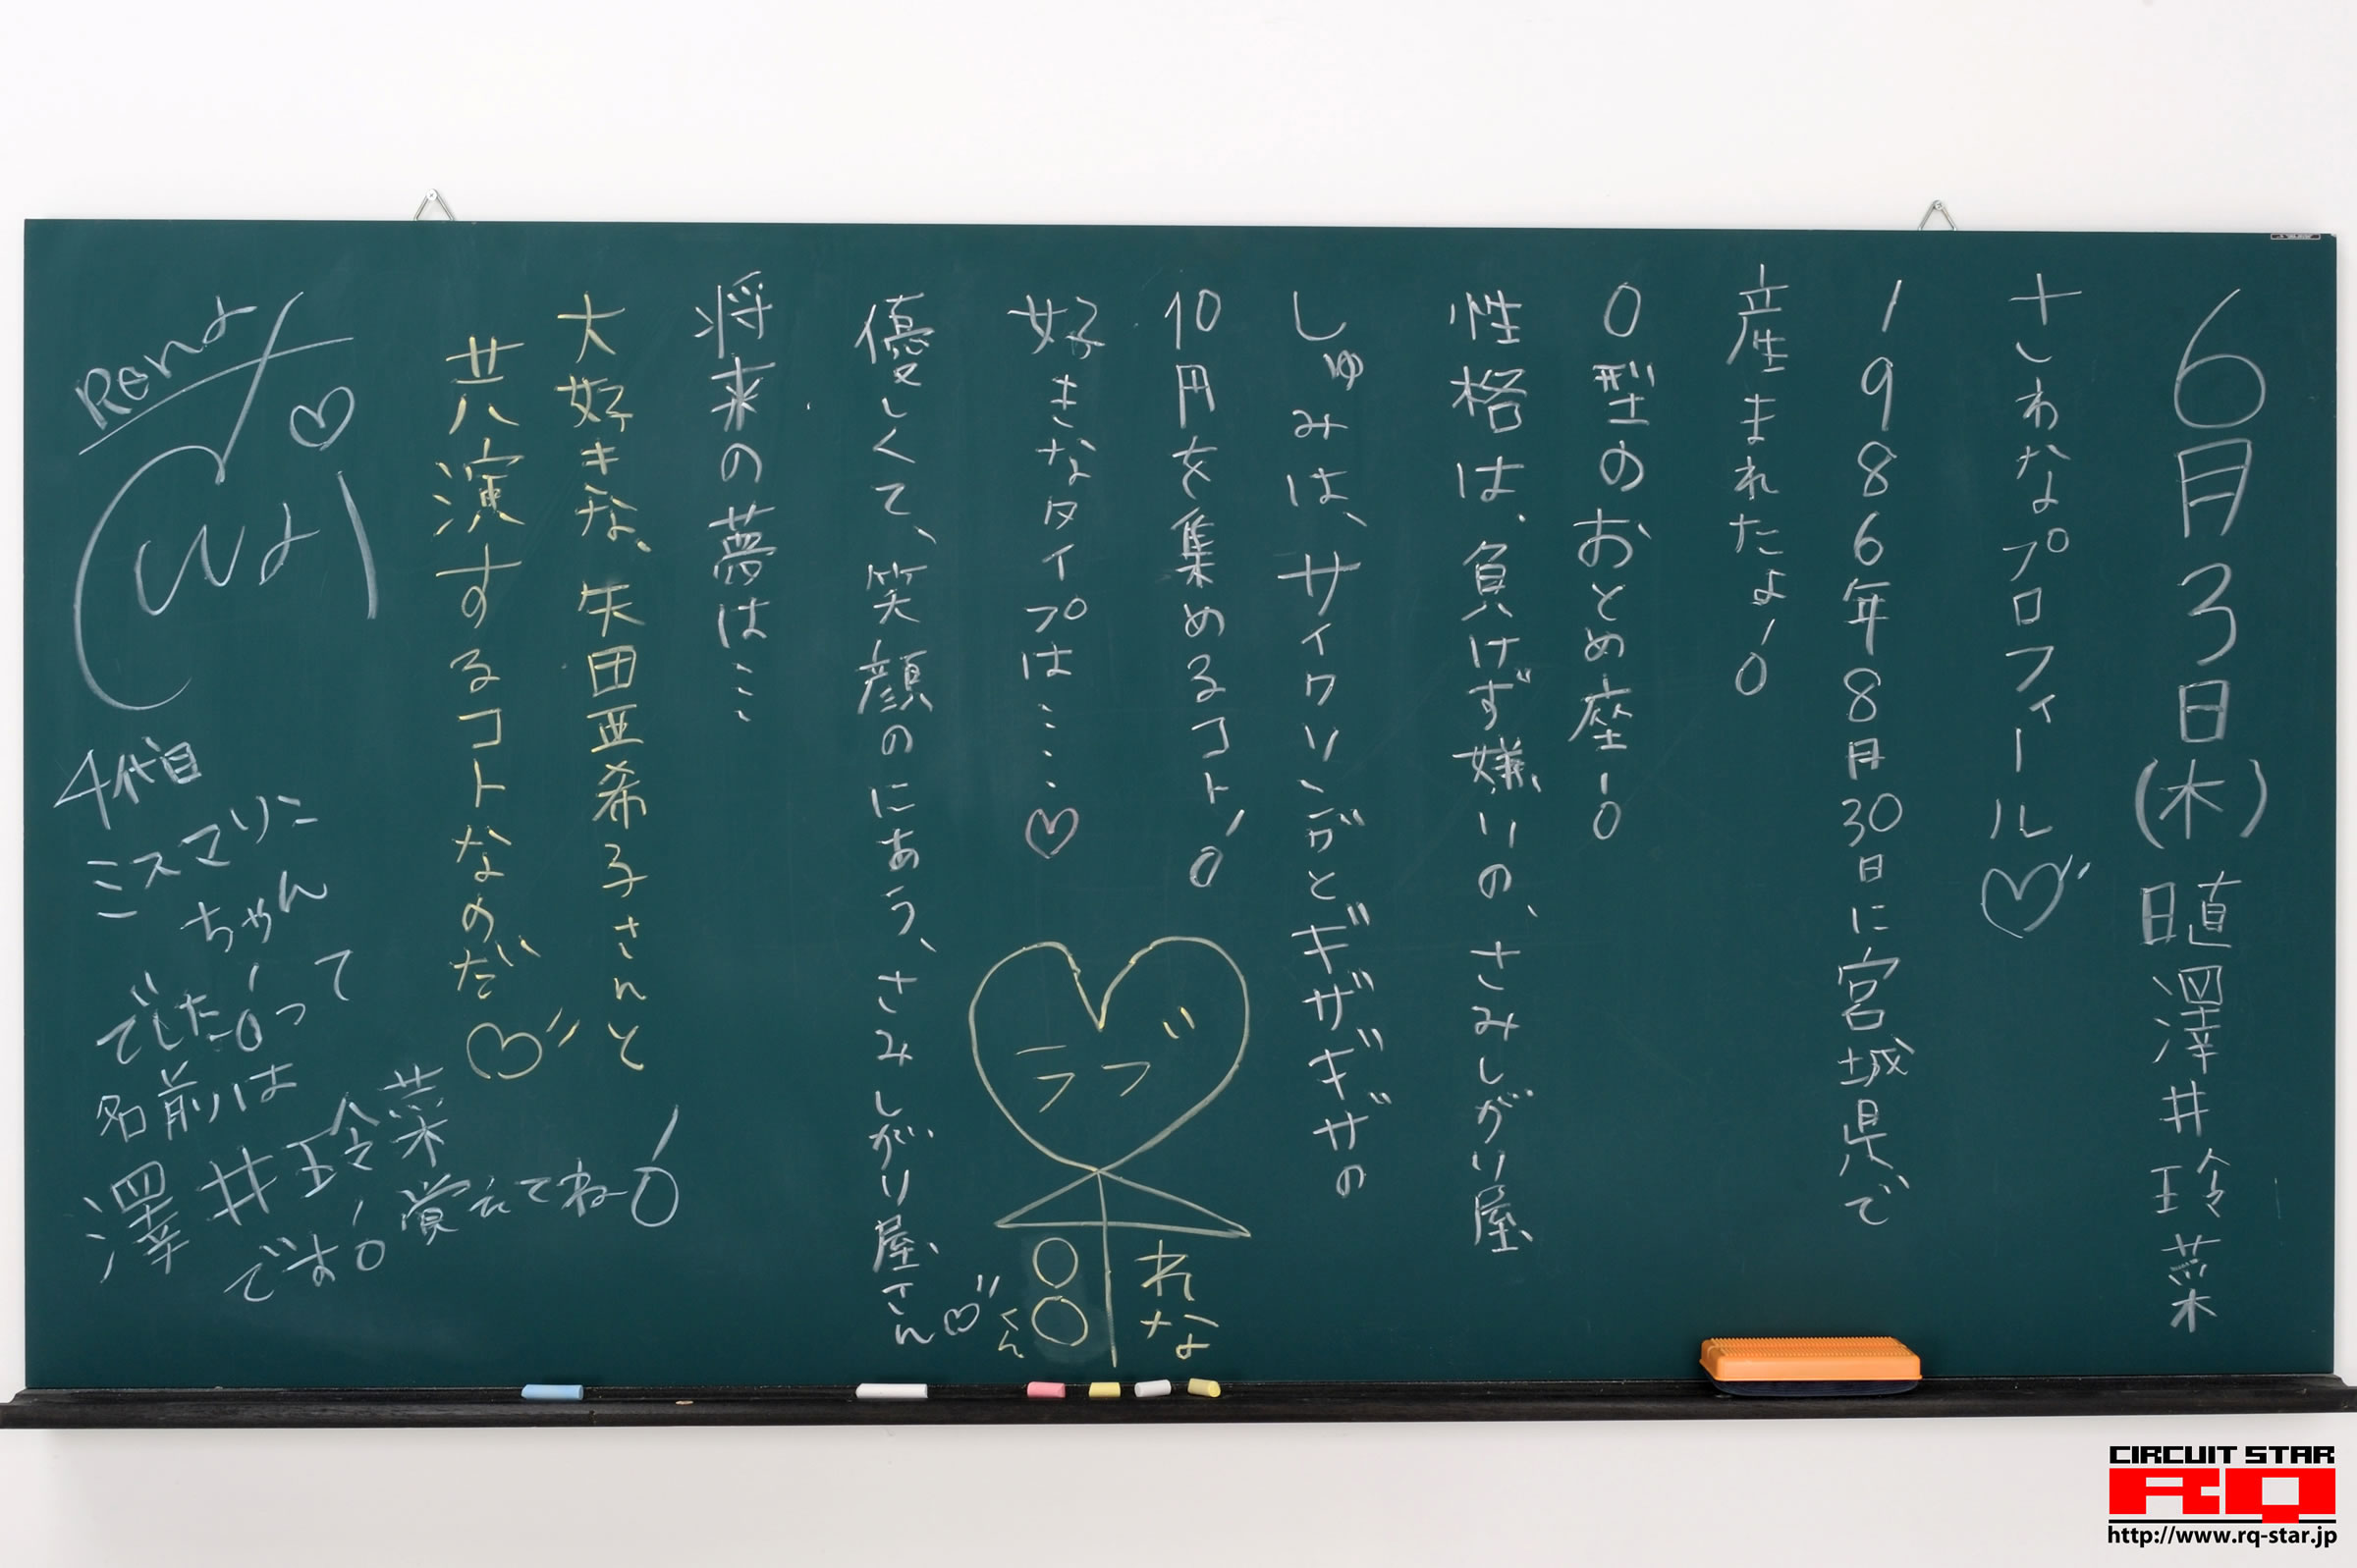 6月3日(木)日直 澤井玲菜
さわなプロフィール♡
1986年8月30日に宮城県で
産まれたよ!
O型のおとめ座!
性格は、負けず嫌いの、さみしがり屋、
しゅみは、サイクリングとギザギザの
10円を集めるコト!
好きなタイプは‥‥♡
優しくて、笑顔のにあう、さみしがり屋さん♡
ラブ
れな
○○くん
将来の夢は…
大好きな、矢田亜希子さんと
共演するコトなのだ♡
Rena
♡
4代目
ミスマリン
ちゃん
でした!って
名前は
澤井玲菜
です!覚えてねー!
CIRCUIT STAR
RQ
http://www.rq-star.jp